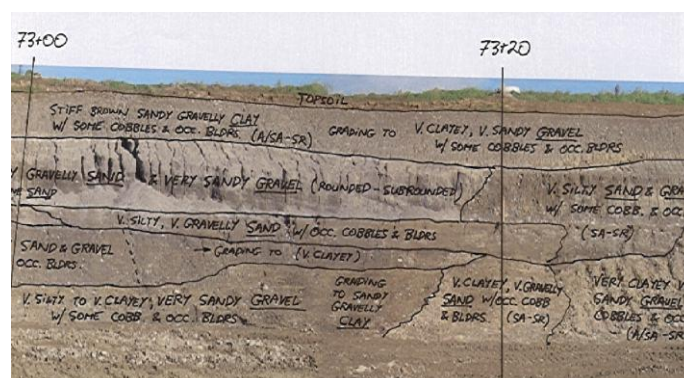 73+00
73+20
TOPSOIL
STIFF BROWN SANDY GRAVELLY CLAY
W/ SOME COBBLES & OCC. BLDRS (A/SA-SR)
GRADING TO V. CLAYEY, V. SANDY GRAVEL
W/ SOME COBBLES & OCC. BLDRS
Y GRAVELLY SAND & VERY SANDY GRAVEL (ROUNDED-SUBROUNDED)
SAND
V. SILTY SAND & GRA
W/ SOME COBB. & OC
(SA-SR)
V. SILTY, V. GRAVELLY SAND W/ OCC. COBBLES & BLDRS
→ GRADING TO (V. CLAYEY)
SAND & GRAVEL
OCC. BLDRS.
V. SILTY TO V. CLAYEY, VERY SANDY GRAVEL
W/ SOME COBB. & OCC. BLDRS.
GRADING
TO SANDY
GRAVELLY
CLAY
V. CLAYEY, V. GRAVELLY
SAND W/ OCC. COBB
& BLDRS. (SA-SR)
VERY CLAYEY V
SANDY GRAVEL
COBBLES & OC
(A/SA-SR